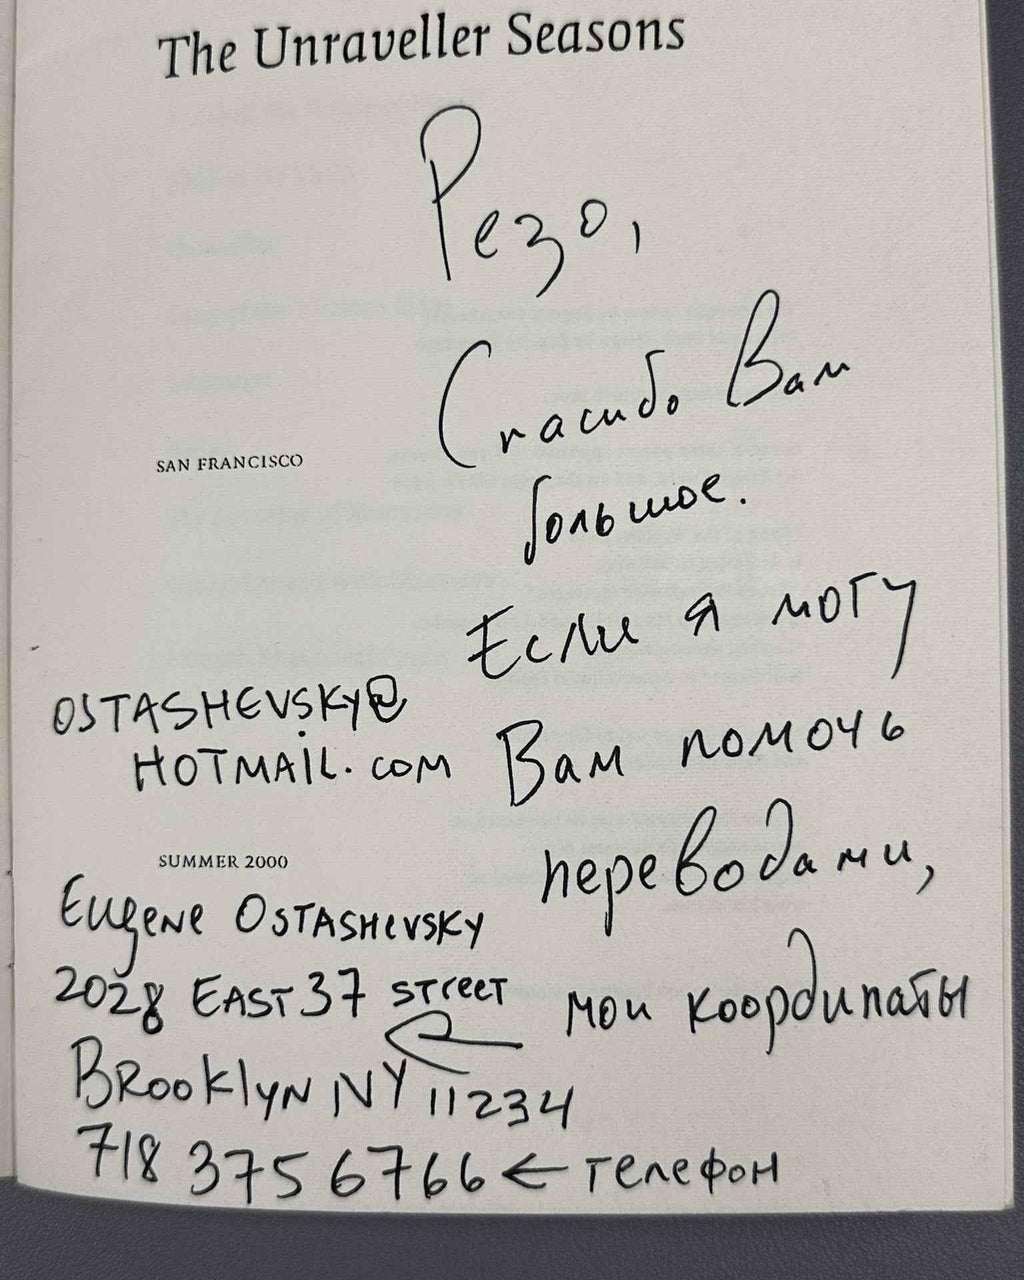 The Unraveller Seasons
Резо,
Спасибо Вам
большое.
SAN FRANCISCO
Если я могу
Вам помочь
переводами,
мои координаты
OSTASHEVSKY@
HOTMAIL.COM
SUMMER 2000
Eugene OSTASHEVSKY
2028 EAST 37 STREET
BROOKLYN NY 11234
718 375 6766 ← телефон